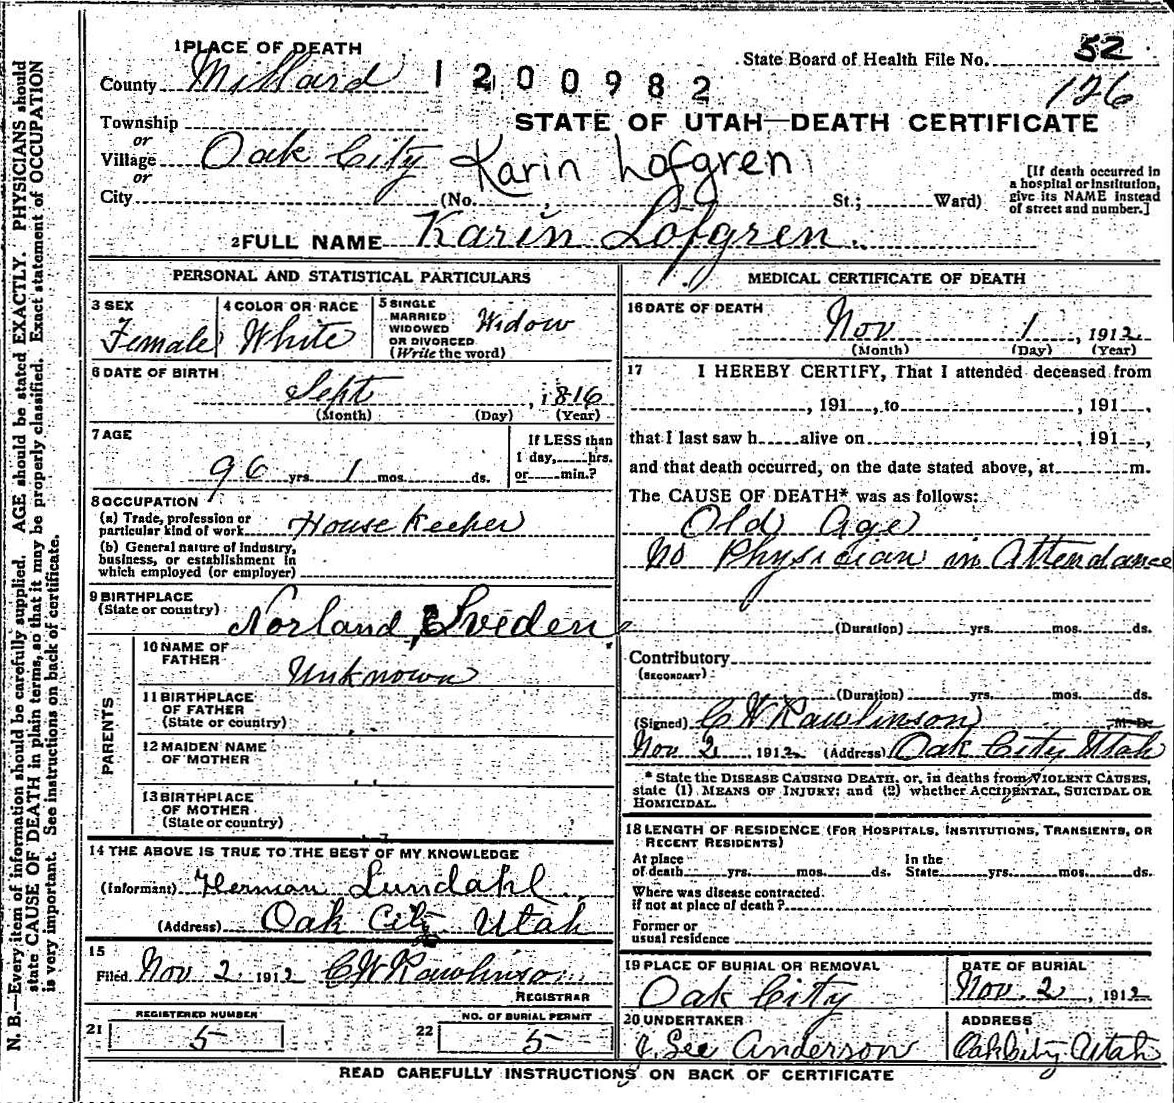 1 PLACE OF DEATH
County Millard
1200982
State Board of Health File No. 52
126
STATE OF UTAH—DEATH CERTIFICATE
Township
or
Village Oak City
Karin Lofgren
or
City (No. , St.; Ward)
[If death occurred in
a hospital or institution,
give its NAME instead
of street and number.]
2 FULL NAME Karin Lofgren.
PERSONAL AND STATISTICAL PARTICULARS
3 SEX
Female
4 COLOR OR RACE
White
5 SINGLE
MARRIED
WIDOWED
OR DIVORCED
(Write the word)
Widow
6 DATE OF BIRTH
Sept , 1816
(Month) (Day) (Year)
7 AGE
96 yrs. 1 mos. ds.
If LESS than
1 day, hrs.
or min.?
8 OCCUPATION
(a) Trade, profession or
particular kind of work House Keeper
(b) General nature of industry,
business, or establishment in
which employed (or employer)
9 BIRTHPLACE
(State or country) Norland, Sveden
PARENTS
10 NAME OF
FATHER Unknown
11 BIRTHPLACE
OF FATHER
(State or country)
12 MAIDEN NAME
OF MOTHER
13 BIRTHPLACE
OF MOTHER
(State or country)
14 THE ABOVE IS TRUE TO THE BEST OF MY KNOWLEDGE
(Informant) Herman Lundahl
(Address) Oak City Utah
15
Filed Nov 2 1912 C W Rawlinson
REGISTRAR
21 REGISTERED NUMBER
5
22 NO. OF BURIAL PERMIT
5
MEDICAL CERTIFICATE OF DEATH
16 DATE OF DEATH
Nov 1, 1912
(Month) (Day) (Year)
17 I HEREBY CERTIFY, That I attended deceased from
, 191 , to , 191 ,
that I last saw h alive on , 191 ,
and that death occurred, on the date stated above, at m.
The CAUSE OF DEATH* was as follows:
Old Age
No Physician in Attendance
(Duration) yrs. mos. ds.
Contributory
(SECONDARY)
(Duration) yrs. mos. ds.
(Signed) C W Rawlinson M. D.
Nov 2 1912 (Address) Oak City Utah
* State the DISEASE CAUSING DEATH, or, in deaths from VIOLENT CAUSES,
state (1) MEANS OF INJURY; and (2) whether ACCIDENTAL, SUICIDAL OR
HOMICIDAL.
18 LENGTH OF RESIDENCE (FOR HOSPITALS, INSTITUTIONS, TRANSIENTS, OR
RECENT RESIDENTS)
At place
of death yrs. mos. ds.
In the
State yrs. mos. ds.
Where was disease contracted
if not at place of death?
Former or
usual residence
19 PLACE OF BURIAL OR REMOVAL
Oak City
DATE OF BURIAL
Nov. 2, 1912
20 UNDERTAKER
J. Lee Anderson
ADDRESS
Oak City Utah
READ CAREFULLY INSTRUCTIONS ON BACK OF CERTIFICATE
N. B.—Every item of information should be carefully supplied. AGE should be stated EXACTLY. PHYSICIANS should
state CAUSE OF DEATH in plain terms, so that it may be properly classified. Exact statement of OCCUPATION
is very important. See instructions on back of certificate.